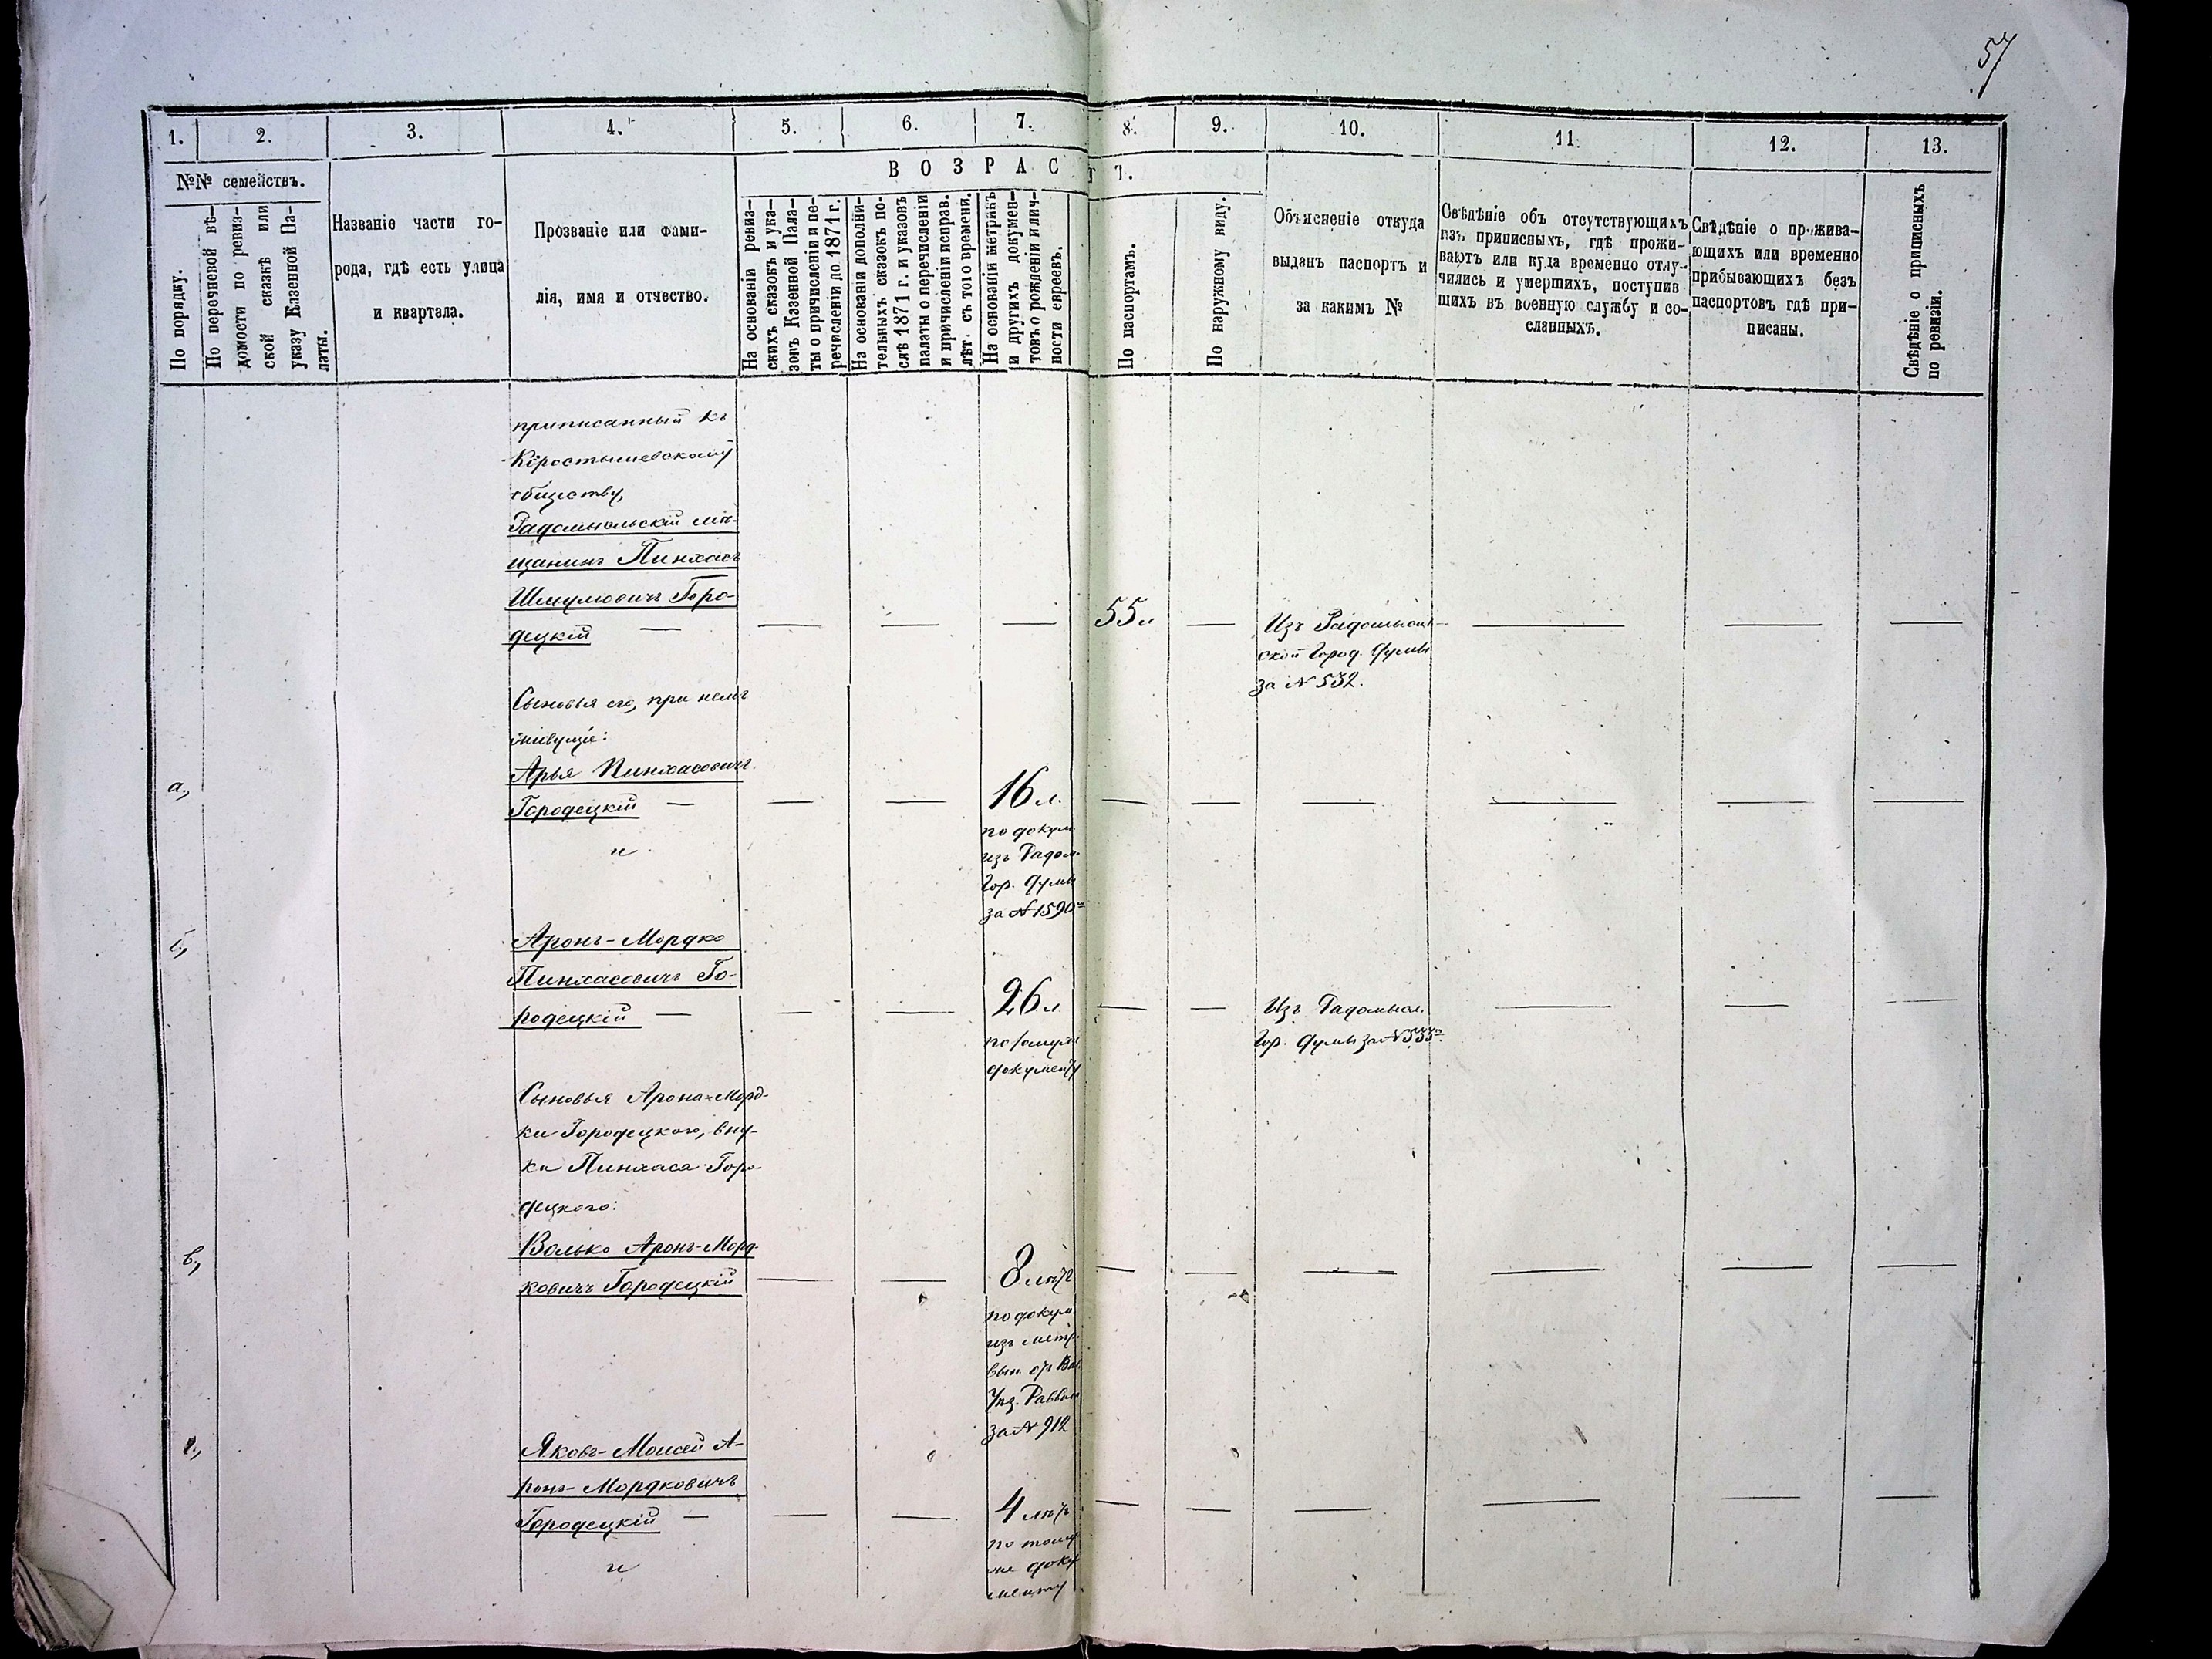 57
1. 2. 3. 4. 5. 6. 7. 8. 9. 10. 11. 12. 13.
№№ семействъ.
В О З Р А С Т Ъ.
По порядку.
По перечневой вѣ-
домости по ревиз-
ской сказкѣ или
указу Казенной Па-
латы.
Названіе части го-
рода, гдѣ есть улица
и квартала.
Прозваніе или фами-
лія, имя и отчество.
На основаніи ревиз-
скихъ сказокъ и ука-
зовъ Казенной Пала-
ты о причисленіи и пе-
речисленіи до 1871 г.
На основаніи дополни-
тельныхъ сказокъ по-
слѣ 1871 г. и указовъ
палаты о перечисленіи
и причисленіи исправ.
лѣт. съ того времени.
На основаніи метрикъ
и другихъ докумен-
товъ о рожденіи и лич-
ности евреевъ.
По паспортамъ.
По наружному виду.
Объясненіе откуда
выданъ паспортъ и
за какимъ №
Свѣдѣніе объ отсутствующихъ
изъ приписныхъ, гдѣ прожи-
ваютъ или куда временно отлу-
чились и умершихъ, поступив
шихъ въ военную службу и со-
сланныхъ.
Свѣдѣніе о прожива-
ющихъ или временно
прибывающихъ безъ
паспортовъ гдѣ при-
писаны.
Свѣдѣніе о приписныхъ
по ревизіи.
приписанный къ
Коростышевскому
обществу,
Радомысльскій мѣ-
щанинъ Пинхасъ
Шмулювичъ Горо-
децкій — — — — 55 л — — — —
Изъ Радомысль-
ской Город. Думы
за № 532.
Сыновья его, при немъ
живущіе:
а., Арья Пинхасовичъ
Городецкій — — — 16 л. — — — — — —
по докум.
изъ Радом.
Гор. Думы
за № 1590
и
б., Аронъ-Мордко
Пинхасовичъ Го-
родецкій — — — 26 л — — — — —
документу
Изъ Радомысл.
Гор. Думы за № 533
Сыновья Арона-Морд-
ки Городецкаго, вну-
ки Пинхаса Горо-
децкаго:
в., Волько Аронъ-Морд-
ковичъ Городецкій — — 8 лѣтъ — — — — — —
по докум.
изъ метр.
вып. отъ Вас.
Уѣз. Раввина
за № 912
г., Яковъ-Моисей А-
ронъ-Мордковичъ
Городецкій — — — 4 лѣтъ — — — — — —
по тому
же доку
менту
и